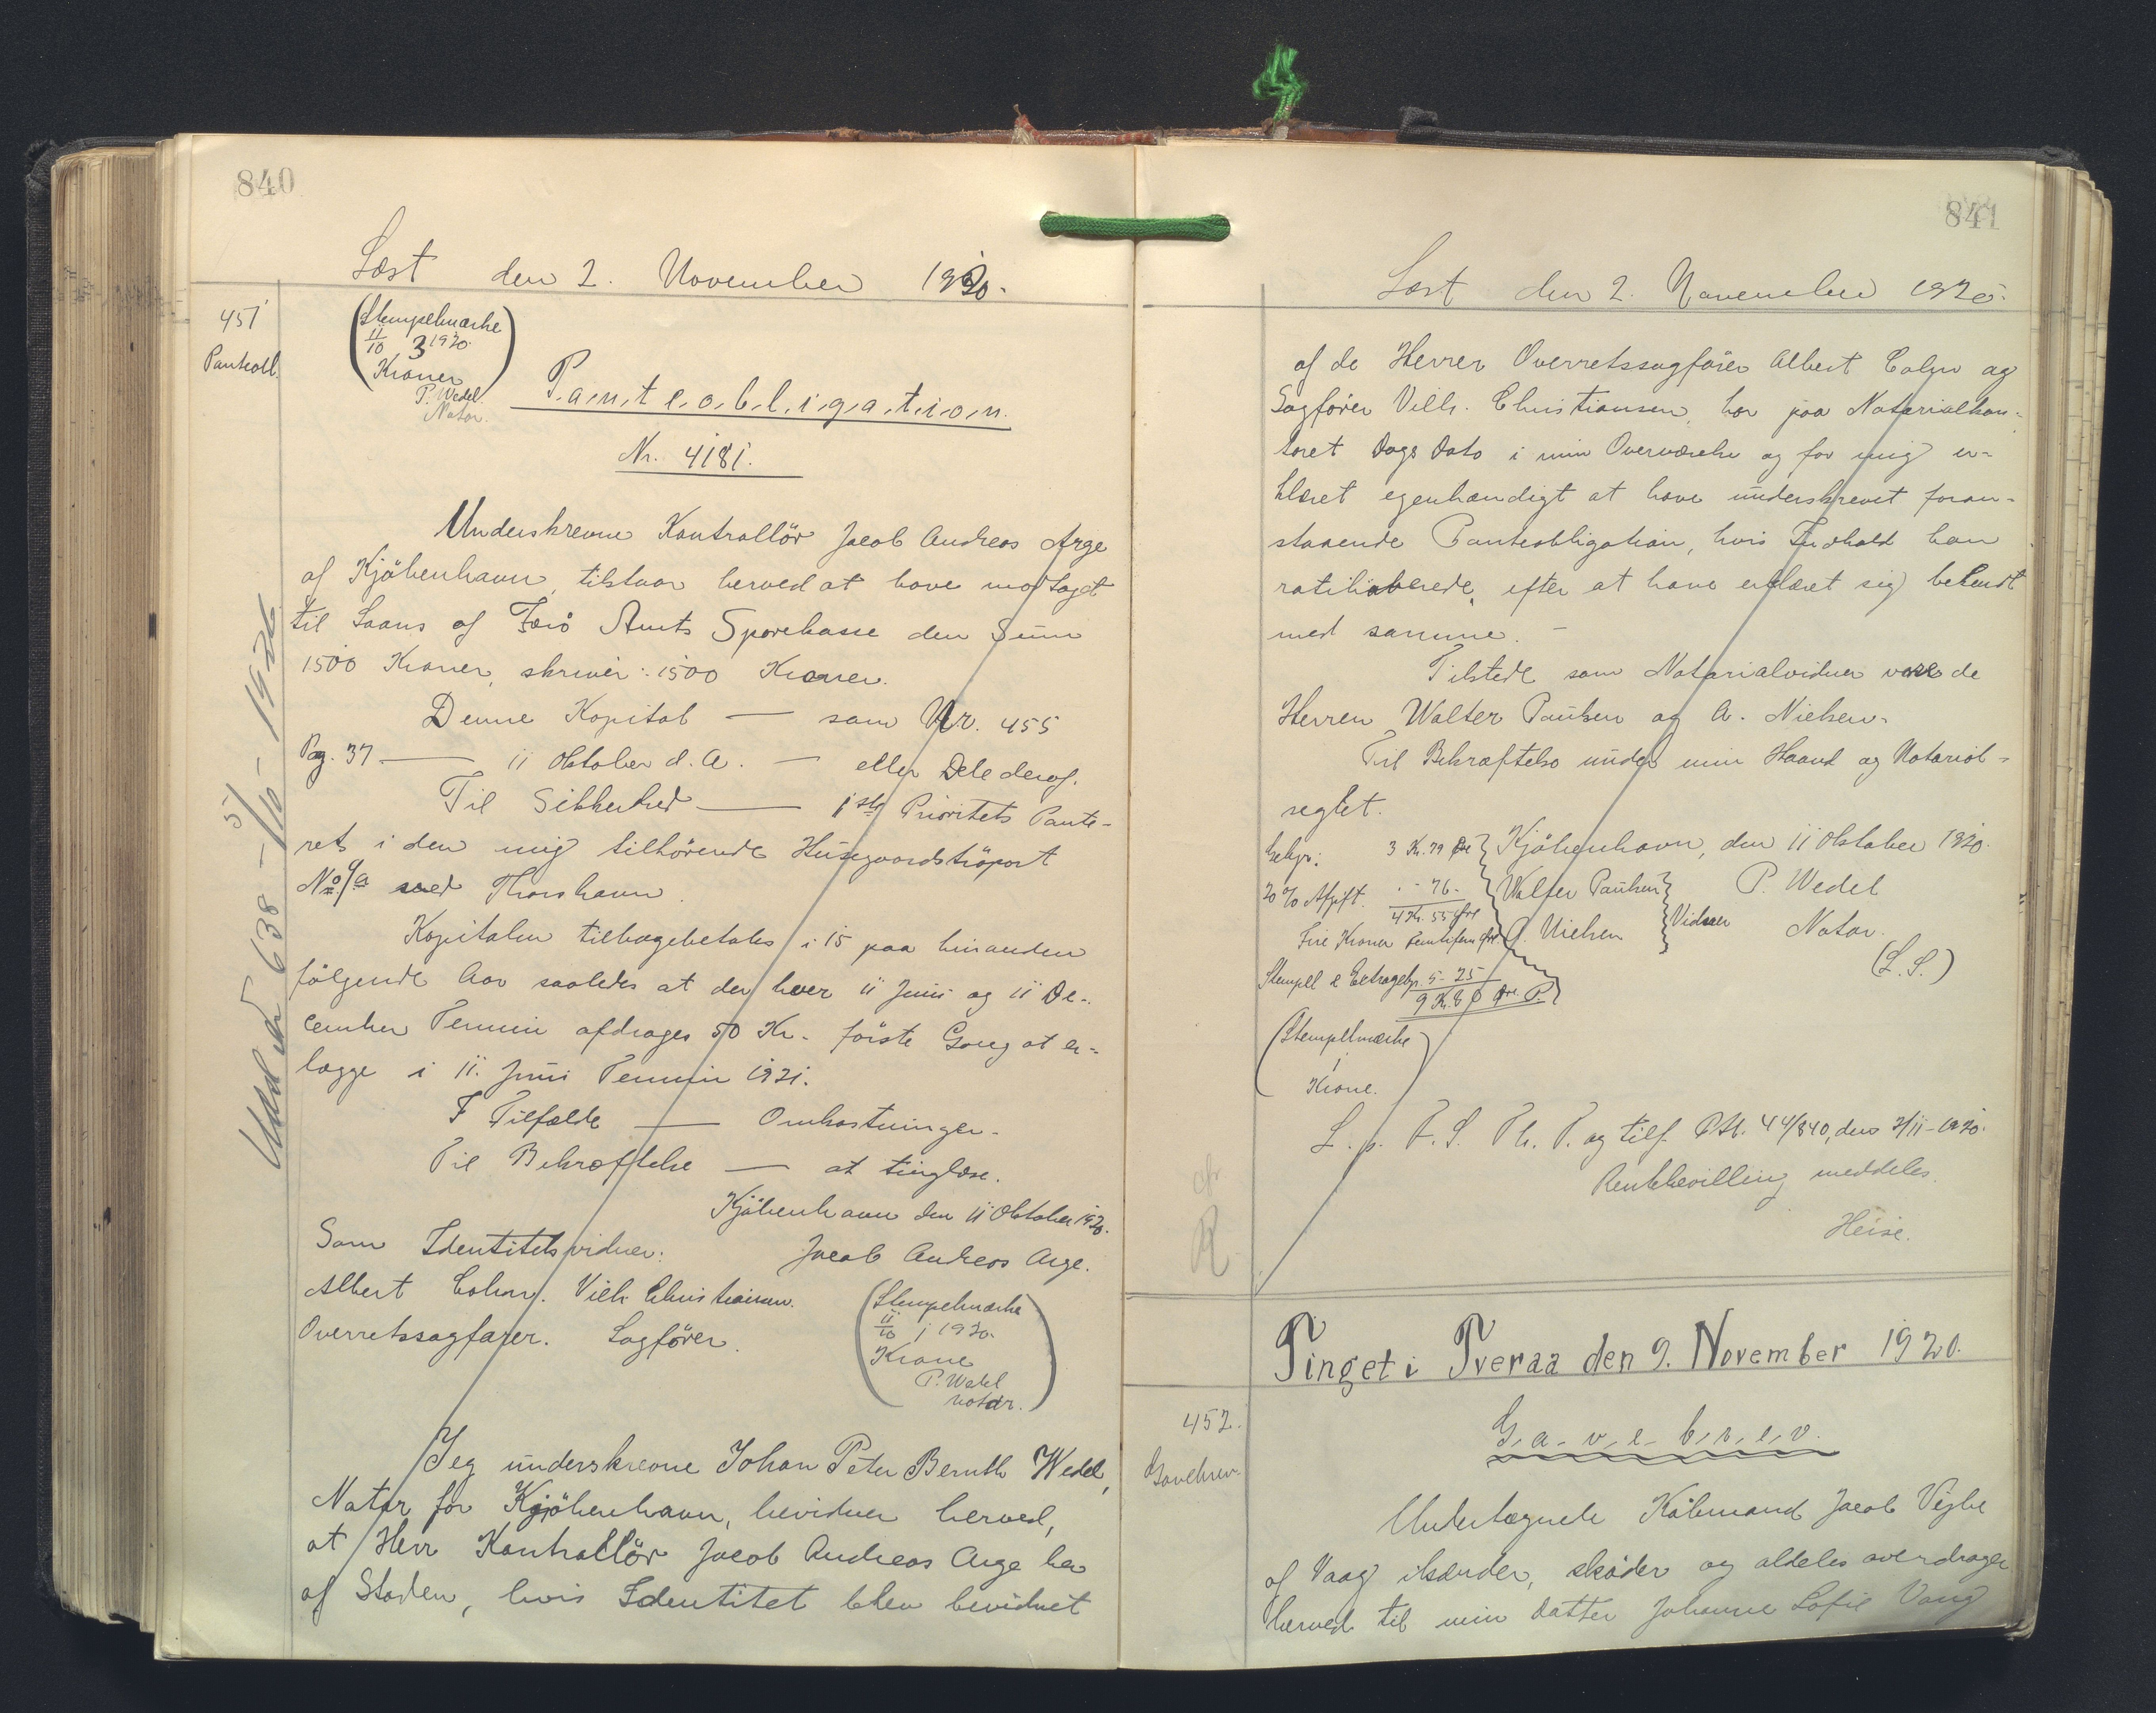 840
Læst den 2. November 1920.
451
Panteobl.
(Stempelmærke
11/10 3 1920.
Kroner
P. Wedel.
Notar.)
P.a.n.t.e.o.b.l.i.g.a.t.i.o.n.
Nr. 4181.
Underskrevne Kontrollör Jacob Andreas Arge
af Kjöbenhavn, tilstaar herved at have modtaget
til Laans af Færö Amts Sparekasse den Sum
1500 Kroner, skriver: 1500 Kroner.
Denne Kapital — som Nr. 455
Pag. 37 — 11 Oktober d. A. — eller Dele deraf.
Til Sikkerhed — 1ste Prioritets Pante-
ret i den mig tilhörende Husgaardströpart
No 9/a ved Thorshavn.
Kapitalen tilbagebetales i 15 paa hinanden
fölgende Aar saaledes at der hver 11 Juni og 11 De-
cember Termin afdrages 50 Kr. förste Gang at er-
lægge i 11. Juni Termin 1921.
I Tilfælde — Omkostninger.
Til Bekræftelse — at tinglæse.
Kjöbenhavn den 11 Oktober 1920.
Som Identitetsvidner: Jacob Andreas Arge.
Albert Cohn. Vilh. Christiansen.
Overretssagförer. Sagförer.
(Stempelmærke
11/10 1 1920.
Krone
P. Wedel
Notar.)
Jeg underskrevne Johan Peter Bernth Wedel,
Notar for Kjöbenhavn, bevidner herved,
at Herr Kontrollör Jacob Andreas Arge her
af Staden, hvis Identitet blev bevidnet
638 - 5/10 - 1926
841
Læst den 2. November 1920.
af de Herrer Overretssagförer Albert Cohn og
Sagförer Vilh. Christiansen, har paa Notarialkon-
toret Dags Dato i min Overværelse og for mig er-
klæret egenhændigt at have underskrevet foran-
staaende Panteobligation, hvis Indhold han
ratihaberede, efter at have erklæret sig bekendt
med samme. -
Tilstede som Notarialvidner vare de
Herrer Walter Paulsen og A. Nielsen.
Til Bekræftelse under min Haand og Notarial-
seglet.
Gebyr: 3 Kr. 79 Øre Kjöbenhavn, den 11 Oktober 1920.
20 % Afgift. - 76 - Walter Paulsen P. Wedel
4 Kr. 55 Øre
Fire Kroner femtifem Øre A. Nielsen Vidner Notar.
(L. S.)
Stempel & Extragebyr 5 - 25
9 Kr. 80 Øre P.
(Stempelmærke
1
Krone.)
L. p. F. S. Th. P. og tilf. P.Pr. 44/840, den 2/11-1920.
Rentebevilling meddeles.
Heise.
Tinget i Tveraa den 9. November 1920.
452.
Gavebrev
G.a.v.e.b.r.e.v.
Undertegnede Købmand Jacob Vejhe
af Vaag iksænder, sköder og aldeles overdrager
herved til min Datter Johanne Sofie Vang